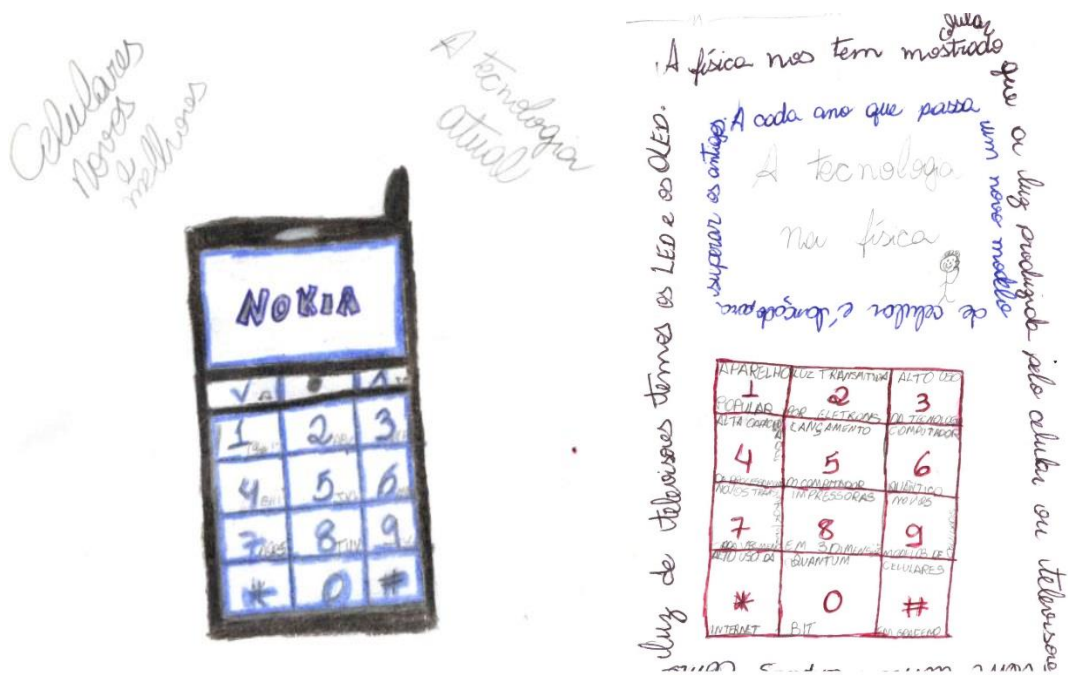 Celulares
novos
e
melhores
A tecnologia
atual
NOKIA
1
2
3
4
5
6
7
8
9
*
0
#
A física nos tem mostrado
que a luz produzida pelo celular ou televisore
luz de televisores temos os LED e os OLED.
A cada ano que passa
um novo modelo
de celular é lançado para
superar os antigos.
A tecnologa
na física
APARELHO
1
POPULAR
LUZ TRANSMITIDA
2
POR ELETRONS
ALTO USO
3
DA TECNOLOGIA
ALTA CAPACIDADE
4
LANÇAMENTO
5
COMPUTADOR
6
QUÂNTICO
7
IMPRESSORAS
8
EM 3 DIMENSÕ
NOVOS
9
MODELOS DE
ALTO USO DA
*
INTERNET
QUANTUM
0
BIT
CELULARES
#
EM GRAFENO